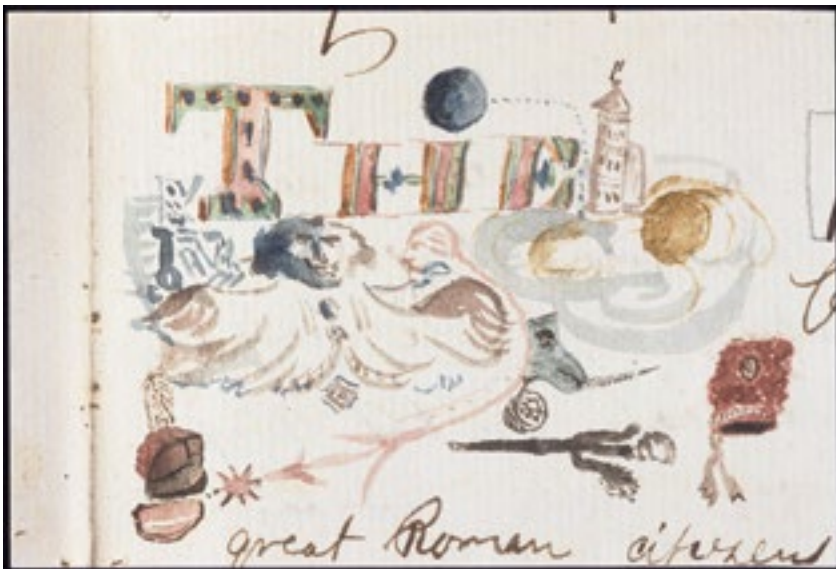 THE
great Roman citizens